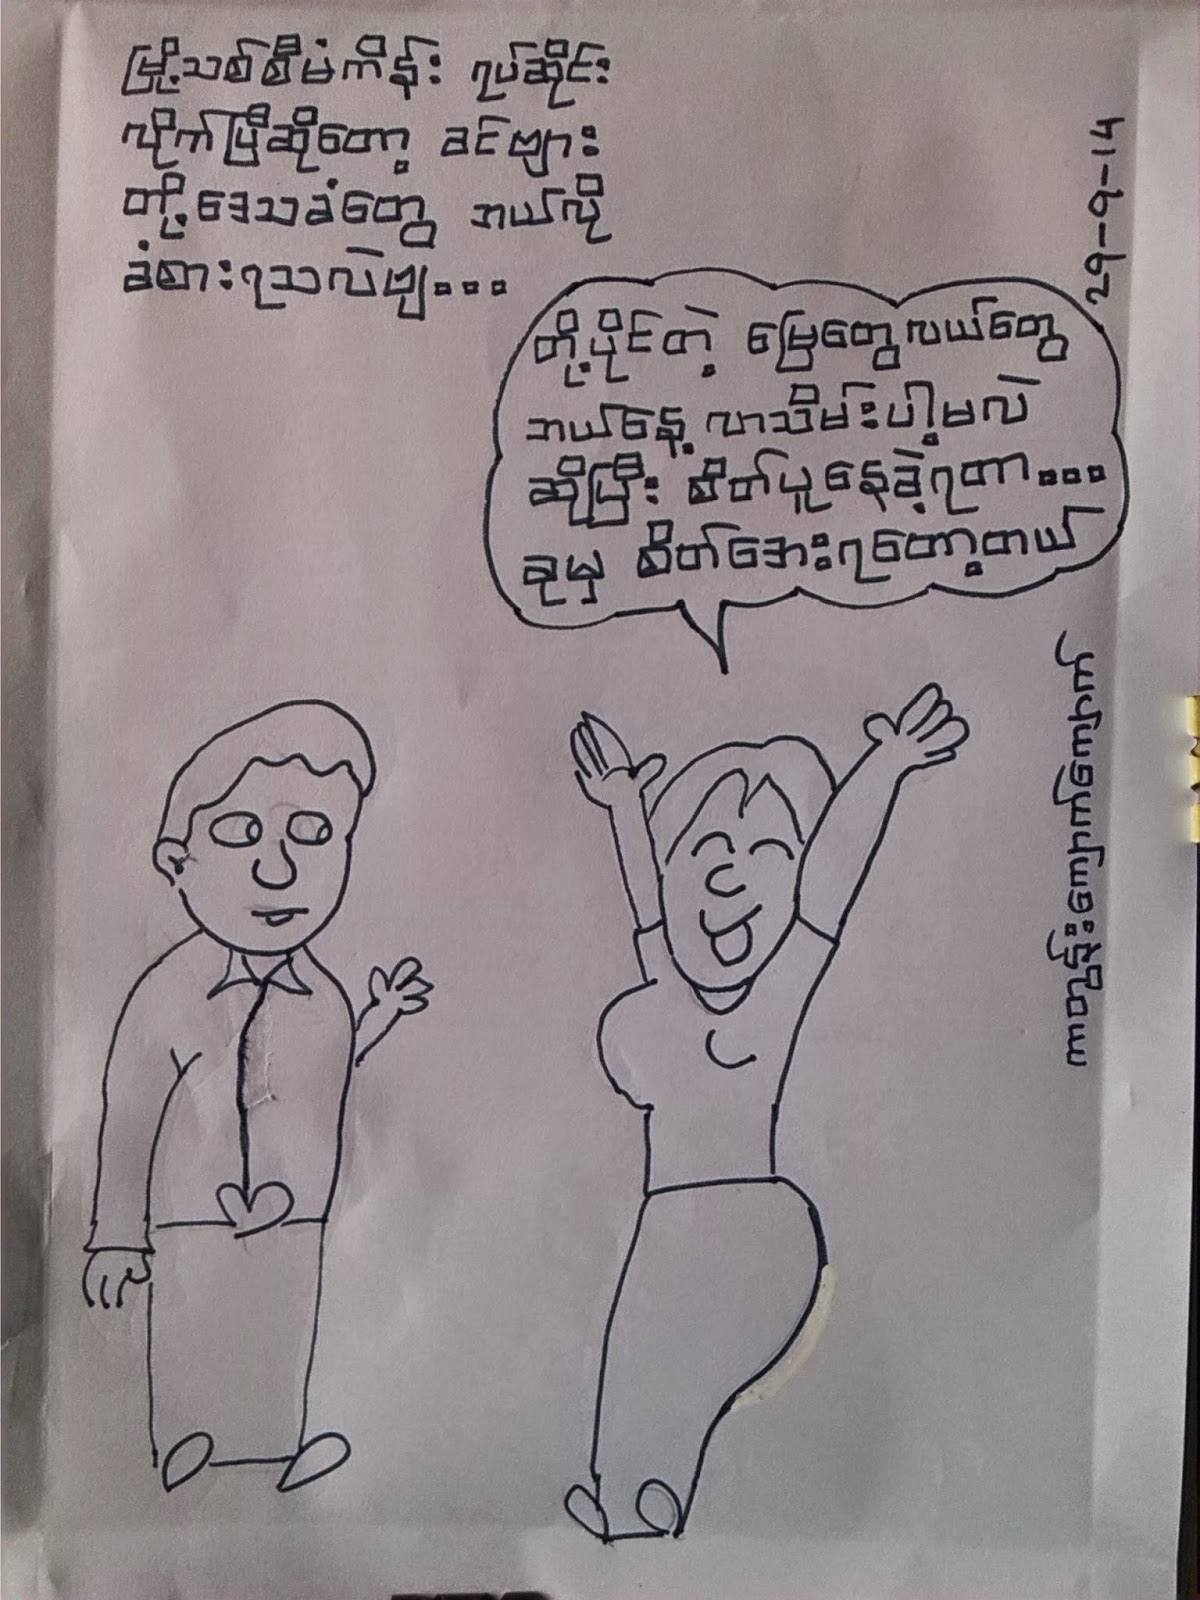 မြို့သစ်စီမံကိန်း ရပ်ဆိုင်း
လိုက်ပြီဆိုတော့ ခင်ဗျား
တို့ဒေသခံတွေ ဘယ်လို
ခံစားရသလဲဗျ...
တို့ပိုင်တဲ့ မြေတွေလယ်တွေ
ဘယ်နေ့ လာသိမ်းပါ့မလဲ
ဆိုပြီး စိတ်ပူနေခဲ့ရတာ...
ခုမှ စိတ်အေးရတော့တယ်
29-9-14
ကာတွန်းကျောက်ကျောက်